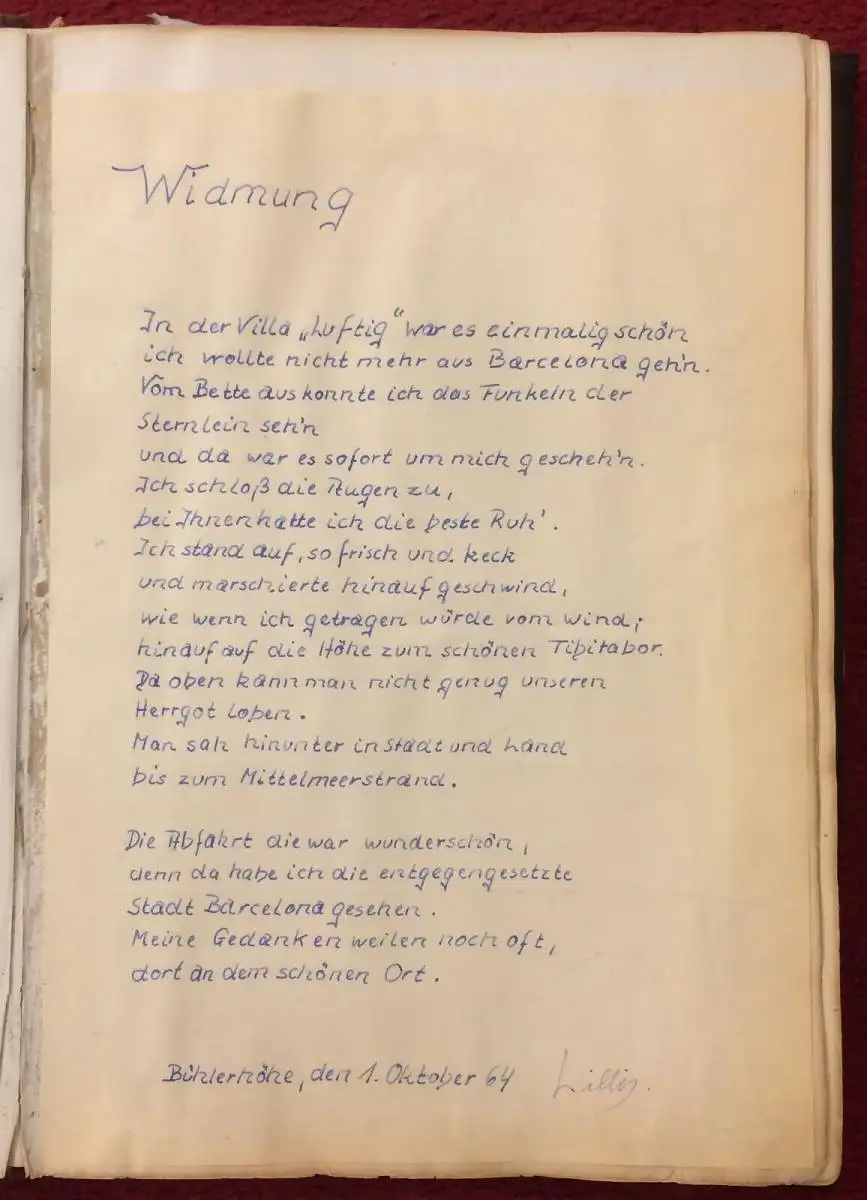 Widmung
In der Villa „Luftig“ war es einmalig schön
ich wollte nicht mehr aus Barcelona geh'n.
Vom Bette aus konnte ich das Funkeln der
Sternlein seh'n
und da war es sofort um mich gescheh'n.
Ich schloß die Augen zu,
bei Ihnen hatte ich die beste Ruh'.
Ich stand auf, so frisch und keck
und marschierte hinauf geschwind,
wie wenn ich getragen würde vom Wind;
hinauf auf die Höhe zum schönen Tibitabor.
Da oben kann man nicht genug unseren
Herrgot loben.
Man sah hinunter in Stadt und Land
bis zum Mittelmeerstrand.
Die Abfahrt die war wunderschön,
denn da habe ich die entgegengesetzte
Stadt Barcelona gesehen.
Meine Gedanken weilen noch oft,
dort an dem schönen Ort.
Bühlerhöhe, den 1. Oktober 64